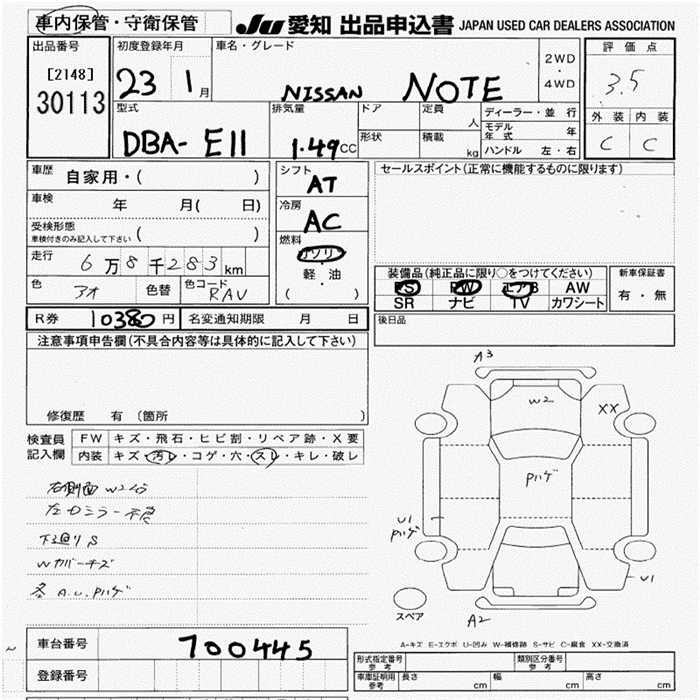 車内保管・守衛保管
JU 愛知 出品申込書 JAPAN USED CAR DEALERS ASSOCIATION
出品番号
[2148]
30113
初度登録年月
23 1月
車名・グレード
NISSAN NOTE
2WD
・
4WD
評価点
3.5
外装 内装
C C
型式
DBA- E11
排気量
1.49CC
ドア
形状
定員
人
積載
kg
ディーラー・並行
モデル年式 年
ハンドル 左・右
車歴 自家用・( )
車検 年 月( 日)
受検形態
車検付きのみ記入して下さい ( )
走行 6万8千283km
色 アオ 色替 色コード RAV
シフト
AT
冷房
AC
燃料
ガソリン
・
軽・油
( )
セールスポイント(正常に機能するものに限ります)
装備品(純正品に限り○をつけてください)
PS PW エアB AW
SR ナビ TV カワシート
新車保証書
有・無
後日品
R券 10380円 名変通知期限 月 日
注意事項申告欄(不具合内容等は具体的に記入して下さい)
修復歴 有 〔箇所 〕
検査員
記入欄
FW キズ・飛石・ヒビ割・リペア跡・X要
内装 キズ・汚レ・コゲ・穴・スレ・キレ・破レ
右側面 W2
左ドミラー
下廻りS
Wカバーキズ
各 A.U.Pハゲ
A3
W2
XX
Pハゲ
U1
Pハゲ
U1
スペア
A2
A-キズ E-エクボ U-凹み W-補修跡 S-サビ C-腐食 XX-交換済
車台番号 700445
登録番号
形式指定番号
参考
類別区分番号
参考
車庫証明用
参考
長さ cm 幅 cm 高さ cm